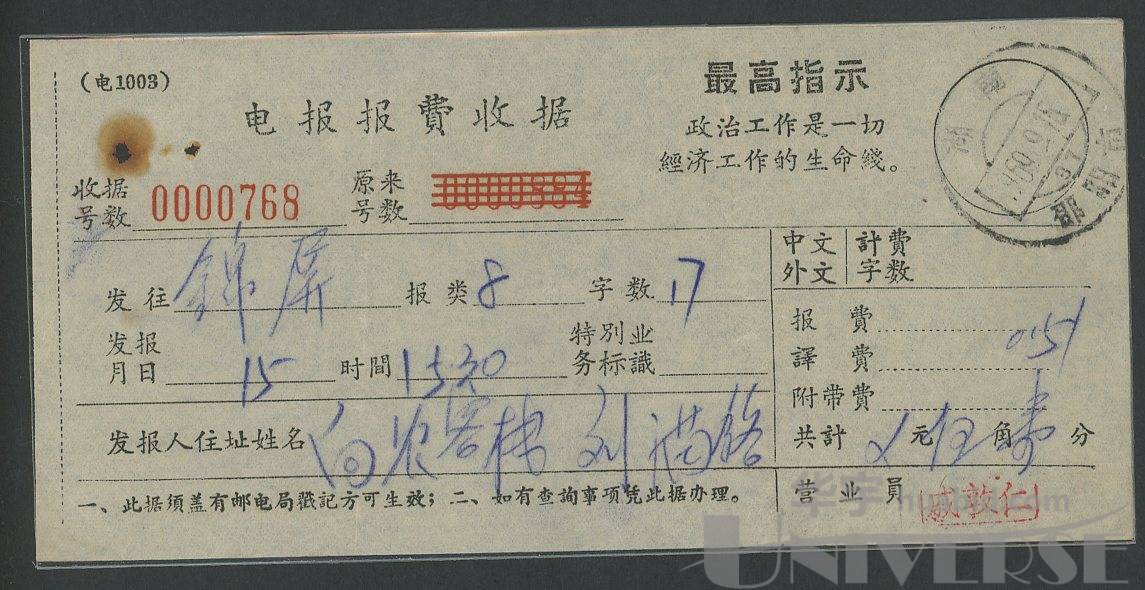 (电1003)
电报报費收据
最高指示
政治工作是一切
經济工作的生命綫。
收据号数 0000768 原来号数 0000884
发往 錦屏 报类 8 字数 17
中文 外文 計費字数
发报月日 15 时間 1530 特別业务标識
报費 0.51
譯費
附带費
发报人住址姓名 刘满
共計 元 伍 角 壹 分
一、此据須盖有邮电局戳記方可生效；二、如有查詢事項凭此据办理。
营业员 戚敦仁
湖南
华宇 huabid.com
UNIVERSE